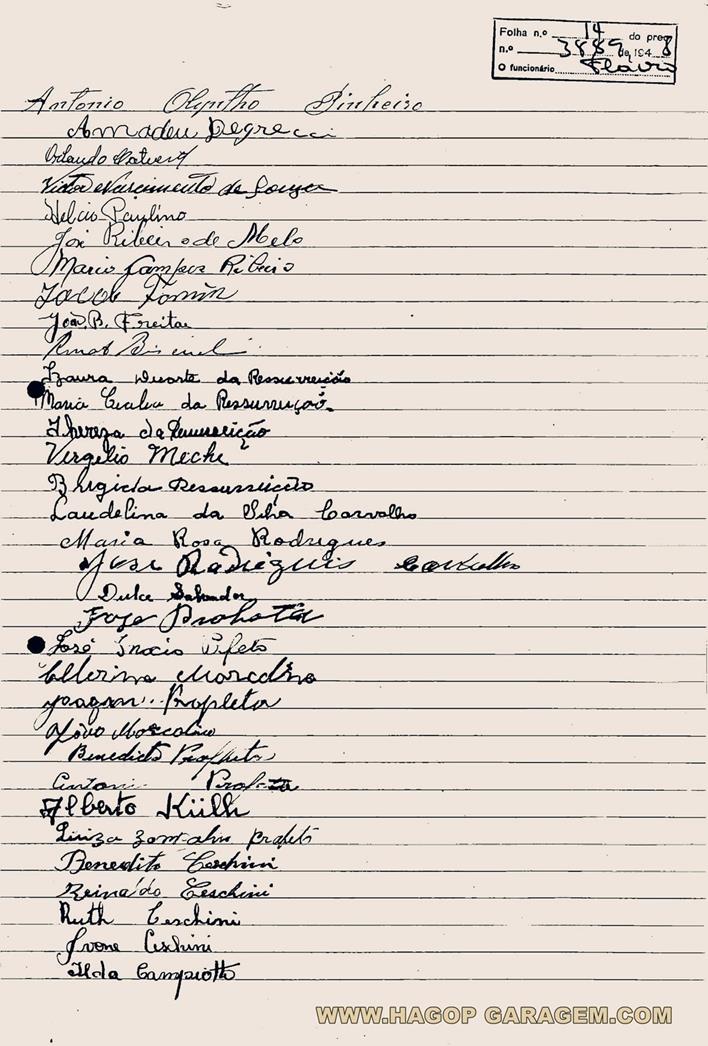 Folha n.º 14 do proc.
n.º 3889 de 1948
O funcionário Flavio
Antonio Olyntho Pinheiro
Amadeu Degrecci
Orlando
Victor Nascimento de Souza
Helcio Paulino
José Ribeiro de Melo
Mario Campos Ribeiro
Jacob Tomin
João B. Freitas
Izaura Duarte da Ressurreição
Maria da Ressurreição
Thereza da Ressurreição
Vergilio Meche
Brigida Ressurreição
Laudelina da Silva Carvalho
Maria Rosa Rodrigues
José Rodriguis Carvalho
Dulce Salvador
José Inacio
Marcolino
João Marcolino
Benedicto
Antoni
Alberto Küilh
Luiza
Benedito Ceschini
Reinaldo Ceschini
Ruth Ceschini
Ivone Ceschini
Ilda Campiotto
WWW.HAGOP GARAGEM.COM